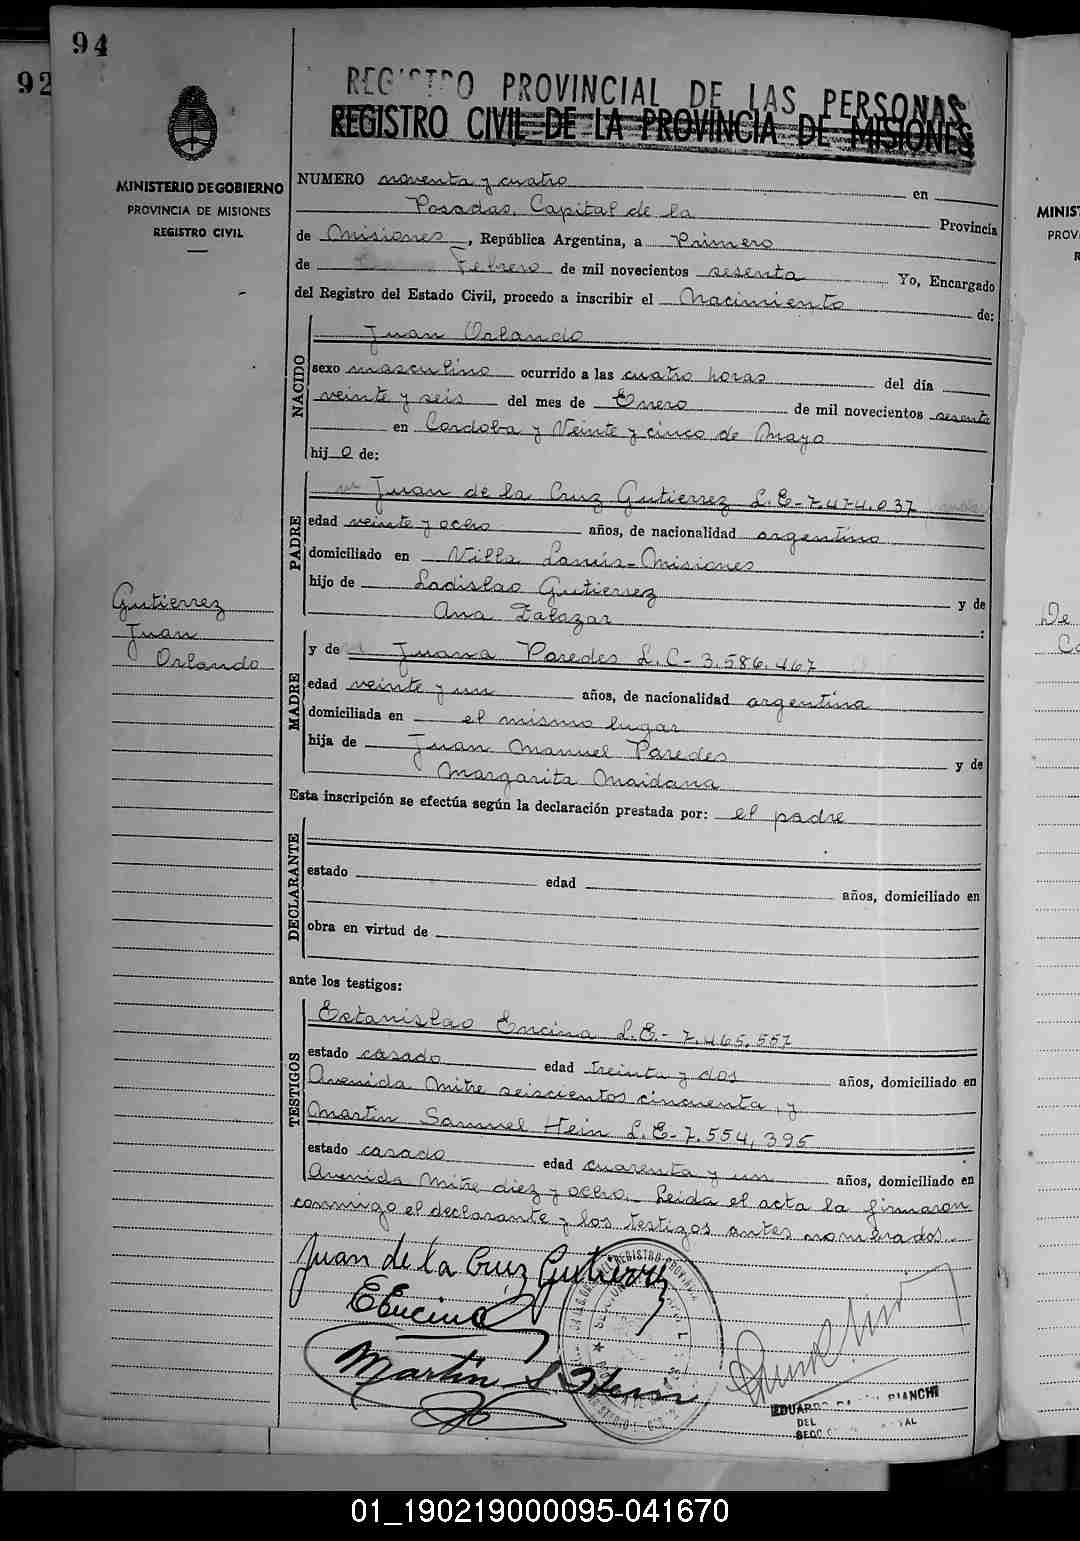 94
92
REGISTRO PROVINCIAL DE LAS PERSONAS
REGISTRO CIVIL DE LA PROVINCIA DE MISIONES
MINISTERIO DE GOBIERNO
PROVINCIA DE MISIONES
REGISTRO CIVIL
NUMERO noventa y cuatro en
Posadas, Capital de la Provincia
de Misiones, República Argentina, a Primero
de Febrero de mil novecientos sesenta Yo, Encargado
del Registro del Estado Civil, procedo a inscribir el Nacimiento de:
NACIDO
Juan Orlando
sexo masculino ocurrido a las cuatro horas del día
veinte y seis del mes de Enero de mil novecientos sesenta
en Cordoba y Veinte y cinco de Mayo
hijo de:
PADRE
Juan de la Cruz Gutierrez L.E-7.474.037
edad veinte y ocho años, de nacionalidad argentino
domiciliado en Villa Lanús-Misiones
hijo de Ladislao Gutierrez y de
Ana Zalazar :
MADRE
y de Juana Paredes L.C-3.586.467
edad veinte y un años, de nacionalidad argentina
domiciliada en el mismo lugar
hija de Juan Manuel Paredes y de
Margarita Maidana
Gutierrez
Juan
Orlando
Esta inscripción se efectúa según la declaración prestada por: el padre
DECLARANTE
estado edad años, domiciliado en
obra en virtud de
ante los testigos:
TESTIGOS
Estanislao Encina L.E.-7.465.557
estado casado edad treinta y dos años, domiciliado en
Avenida Mitre seiscientos cincuenta, y
Martin Samuel Hein L.E-7.554,395
estado casado edad cuarenta y un años, domiciliado en
Avenida Mitre diez y ocho.- Leida el acta la firmaron
conmigo el declarante y los testigos antes nombrados.-
Juan de la Cruz Gutierrez
E Encina
Martin S Hein
EDUARDO BIANCHI
DEL
MINIST
PROV
De
01_190219000095-041670